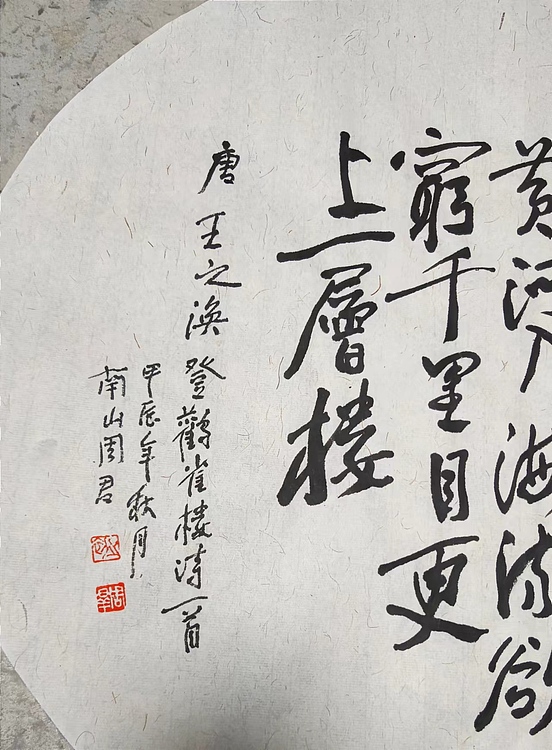 黄河入海流欲
窮千里目更
上一層楼
唐王之涣登鸛雀楼诗一首
甲辰年秋月
南山周君